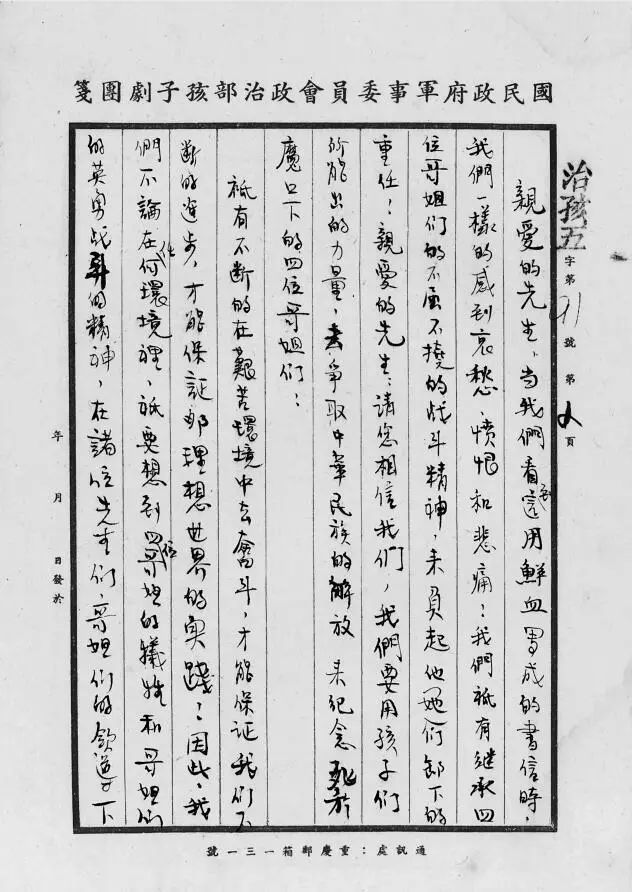 國民政府軍事委員會政治部孩子劇團箋
治孩五字第91號第2頁
親愛的先生,当我們看到這用鮮血寫成的書信時,
我們一樣的感到哀愁、憤恨和悲痛:我們祗有继承四
位哥姐们的不屈不撓的战斗精神,来負起他她们卸下的
重任!親愛的先生:請您相信我们,我們要用孩子們
所能出的力量,去爭取中華民族的解放来纪念死於
魔口下的四位哥姐们:
祗有不断的在艱苦環境中去奮斗,才能保证我们不
断的進步,才能保証那理想世界的实踐:因此,我
們不論在任何環境裡,祗要想到四位哥姐的犧牲和哥姐们
的英勇战斗的精神,在諸位先生们,哥姐们的领導下
年 月 日發於
通訊處:重慶郵箱一三一號